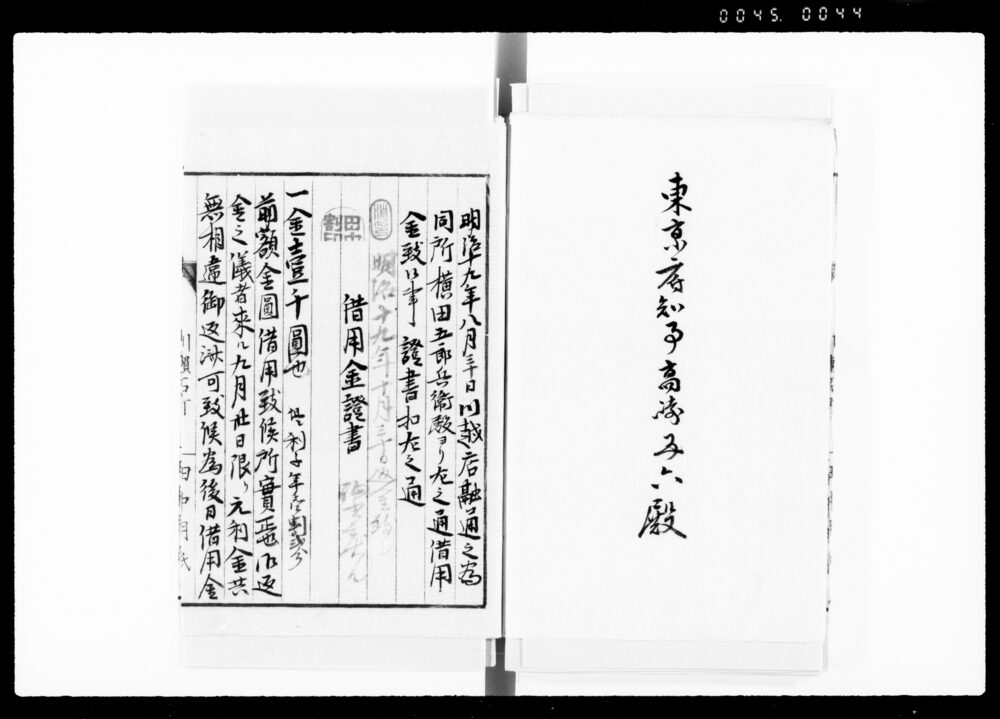 0045. 0044
東京府知事高崎五六殿
明治十九年八月三十日川越店融通之為
同所横田五郎兵衛殿ヨリ左之通借用
金致候事 證書扣左之通
明治十九年十月三
借用金證書
一金壹千圓也 但利子年壹割貳分
前額金圓借用致候所實正也御返
金之儀者來ル九月廿日限リ元利金共
無相違御返済可致候為後日借用金